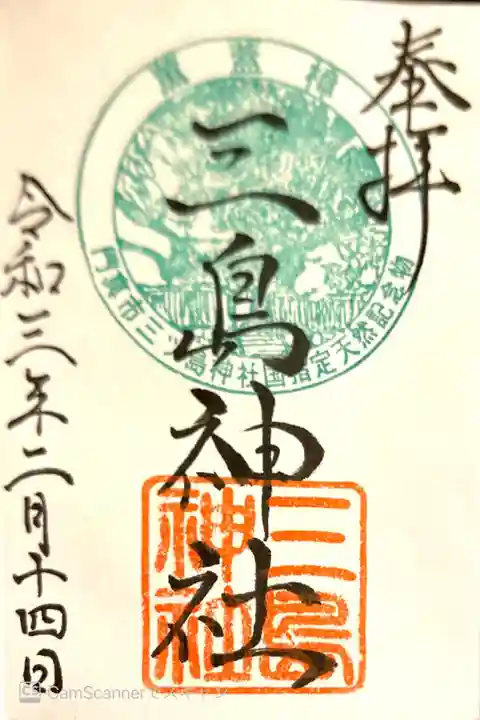 奉拝
三島神社
令和三年二月十四日
薫蓋樟
門真市三ツ島神社国指定天然記念物
三島
神社
CS CamScanner でスキャン